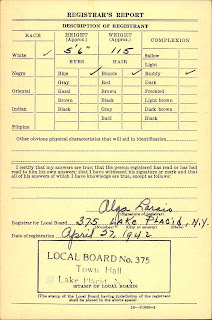 REGISTRAR'S REPORT
DESCRIPTION OF REGISTRANT
RACE HEIGHT (Approx.) WEIGHT (Approx.) COMPLEXION
White ✓ 5'6" 115 Sallow
EYES HAIR Light
Negro Blue ✓ Blonde ✓ Ruddy ✓
Gray Red Dark
Oriental Hazel Brown Freckled
Brown Black Light brown
Indian Black Gray Dark brown
Bald Black
Filipino
Other obvious physical characteristics that will aid in identification
I certify that my answers are true; that the person registered has read or has had
read to him his own answers; that I have witnessed his signature or mark and that
all of his answers of which I have knowledge are true, except as follows:
(Signature of registrar)
Registrar for Local Board 375 Lake Placid, N.Y.
Date of registration April 27, 1942
LOCAL BOARD No. 375
Town Hall
Lake Placid, N.Y.
(STAMP OF LOCAL BOARD)
(The stamp of the Local Board having jurisdiction of the registrant
shall be placed in the above space)